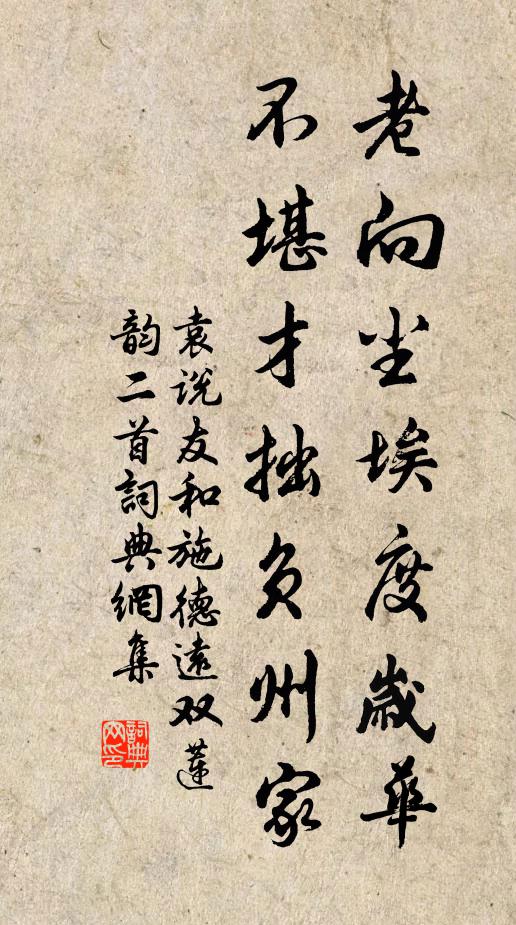 老向尘埃度歲華
不堪才拙负州家
袁说友和施德遠双蓮
韵二首詞典網集
詞典网印